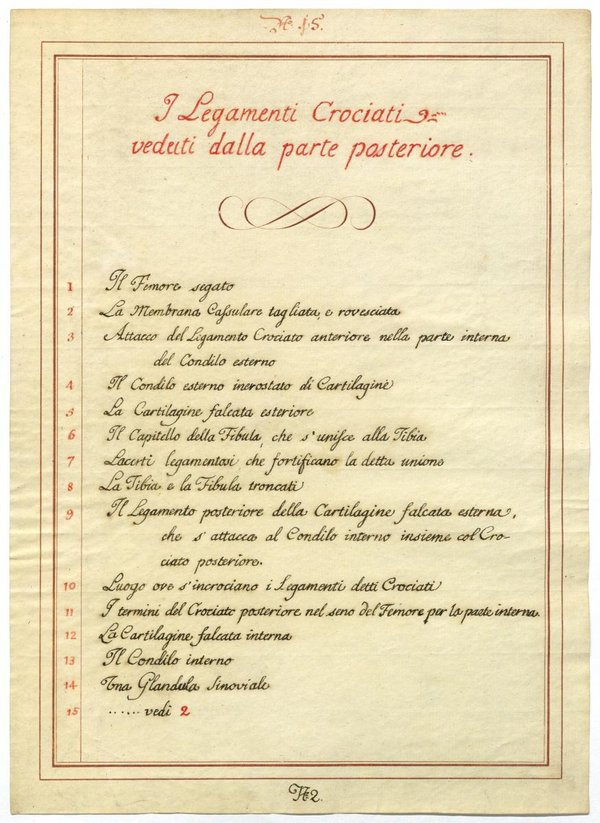 N. 15.
I Legamenti Crociati
veduti dalla parte posteriore.
1 Il Femore segato
2 La Membrana Cassulare tagliata, e rovesciata
3 Attacco del Legamento Crociato anteriore nella parte interna
del Condilo esterno
4 Il Condilo esterno incrostato di Cartilagine
5 La Cartilagine falcata esteriore
6 Il Capitello della Fibula, che s'unisce alla Tibia
7 Lacerti legamentosi che fortificano la detta unione
8 La Tibia e la Fibula troncati
9 Il Legamento posteriore della Cartilagine falcata esterna,
che s'attacca al Condilo interno insieme col Cro-
ciato posteriore.
10 Luogo ove s'incrociano i Legamenti detti Crociati
11 I termini del Crociato posteriore nel seno del Femore per la parte interna
12 La Cartilagine falcata interna
13 Il Condilo interno
14 Una Glandula sinoviale
15 ...... vedi 2
N2.